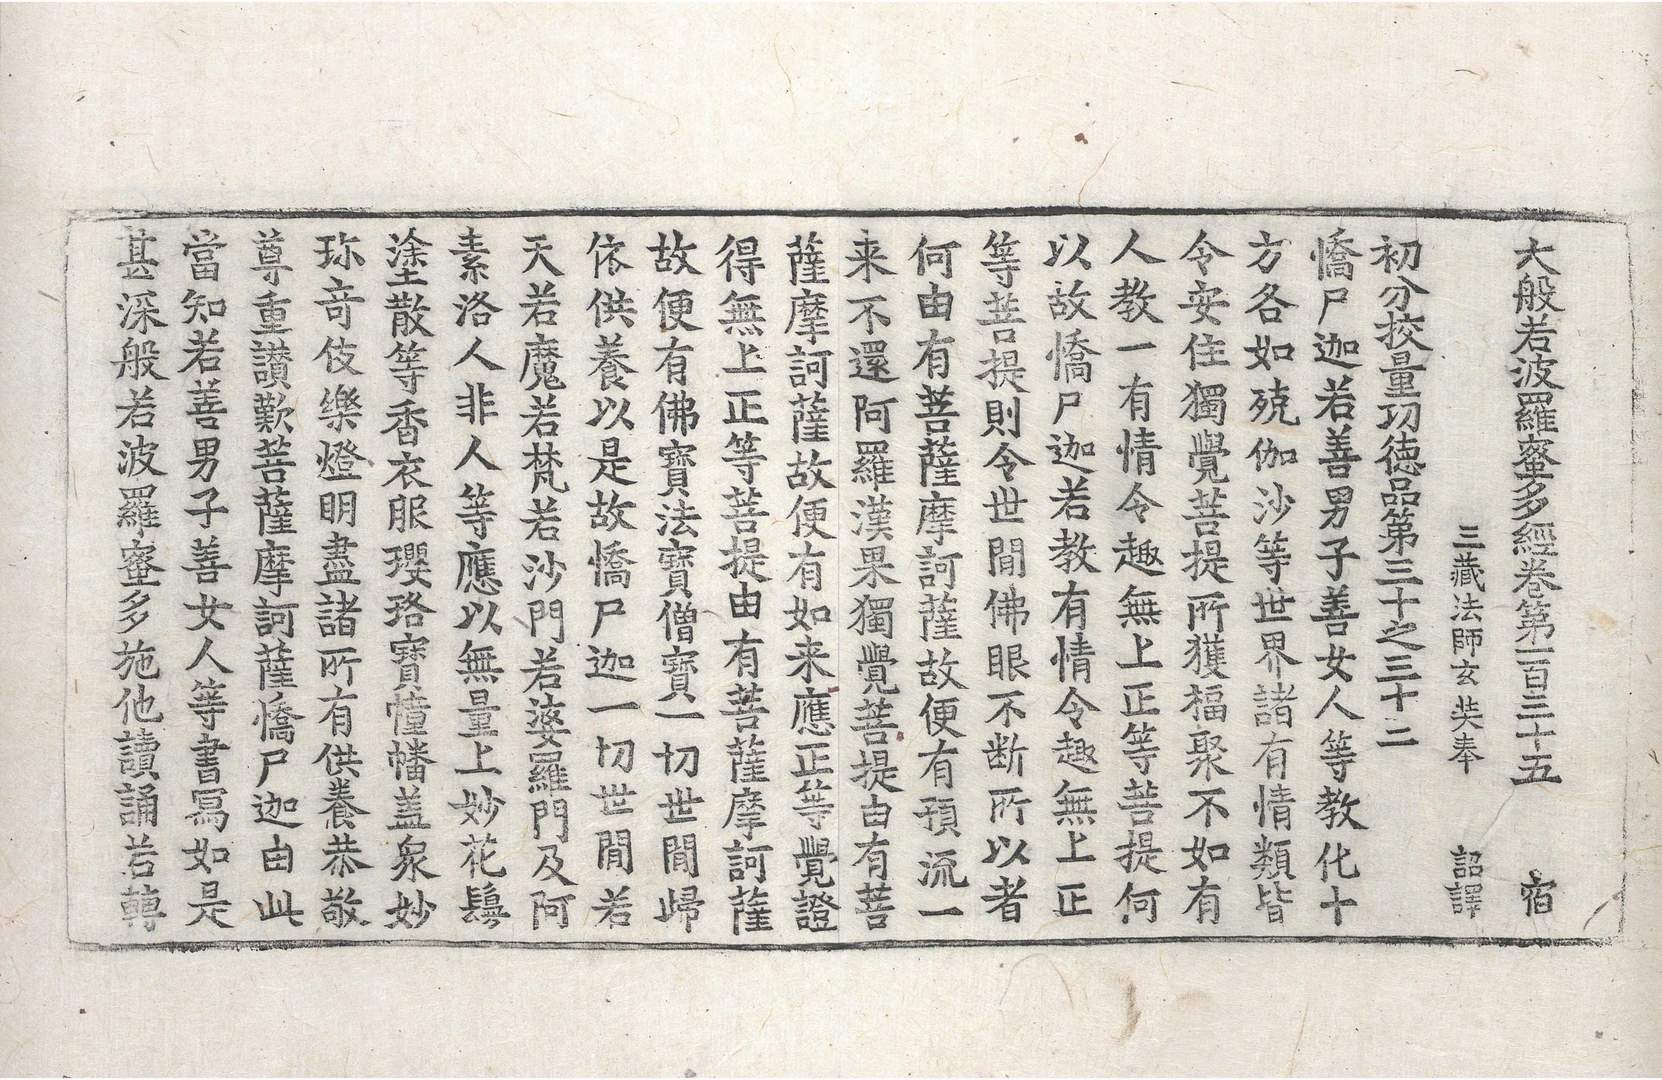 大般若波羅蜜多經卷第一百三十五　宿
三藏法師玄奘奉　詔譯
初分挍量功徳品第三十之三十二
憍尸迦若善男子善女人等教化十
方各如殑伽沙等世界諸有情類皆
令安住獨覺菩提所獲福聚不如有
人教一有情令趣無上正等菩提何
以故憍尸迦若教有情令趣無上正
等菩提則令世間佛眼不断所以者
何由有菩薩摩訶薩故便有預流一
来不還阿羅漢果獨覺菩提由有菩
薩摩訶薩故便有如来應正等覺證
得無上正等菩提由有菩薩摩訶薩
故便有佛寶法寶僧寶一切世間歸
依供養以是故憍尸迦一切世間若
天若魔若梵若沙門若婆羅門及阿
素洛人非人等應以無量上妙花鬘
塗散等香衣服瓔珞寶幢幡盖衆妙
珎竒伎樂燈明盡諸所有供養恭敬
尊重讃歎菩薩摩訶薩憍尸迦由此
當知若善男子善女人等書冩如是
甚深般若波羅蜜多施他讀誦若轉